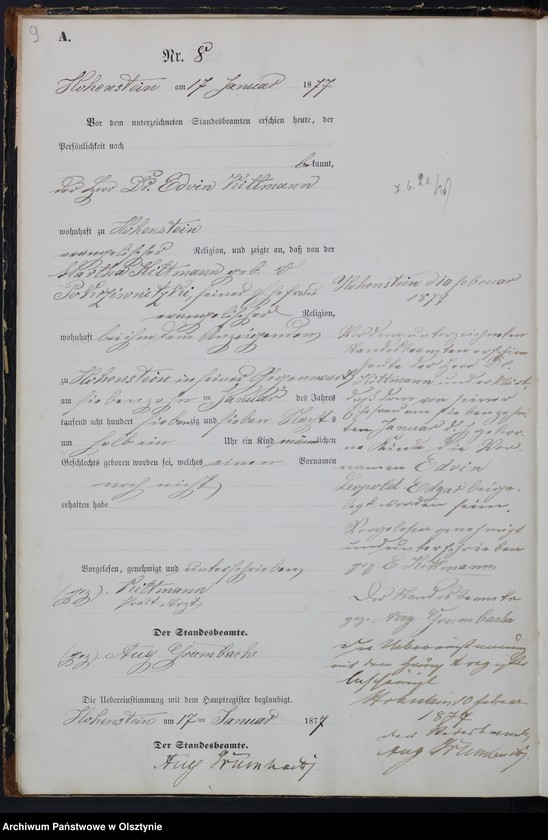 9
A.
Nr. 8
Hohenstein am 17 Januar 1877
Vor dem unterzeichneten Standesbeamten erschien heute, der
Persönlichkeit nach
bekannt,
der Herr Dr. Edvin Kittmann
wohnhaft zu Hohenstein
evangelischer Religion, und zeigte an, daß von der
Martha Kittmann geb. v
seiner Ehefrau
evangelischer Religion,
wohnhaft bei ihm dem Anzeigenden
zu Hohenstein in seiner Gegenwart
am siebenzehn ten Januar des Jahres
tausend acht hundert siebenzig und sieben Nachts
um halb ein Uhr ein Kind männlichen
Geschlechts geboren worden sei, welches einen Vornamen
noch nicht
erhalten habe
Vorgelesen, genehmigt und unterschrieben
(gez). Kittmann
prakt. Arzt
Der Standesbeamte.
(gez). Aug Grumbach
Die Uebereinstimmung mit dem Hauptregister beglaubigt.
Hohenstein am 17 ten Januar 1877
Der Standesbeamte.
Aug Grumbach
Hohenstein d 10 Februar
1877
Vor dem unterzeichneten
Standesbeamten erschien
heute der Herr Dr.
Kittmann und erklärt,
daß dem von seiner
Ehefrau am siebenzehn
ten Januar d. J. gebor
ne Kinde die Vor
namen Edvin
Leopold Edgar beige
legt worden seien.
Vorgelesen genehmigt
und unterschrieben
gez. E Kittmann
Der Standesbeamte
gez. Aug Grumbach
Die Uebereinstimmung
mit dem Hauptregister
bescheinigt
Hohenstein 10 Februar
1877
der Standesbeamte
Aug Grumbach
Archiwum Państwowe w Olsztynie